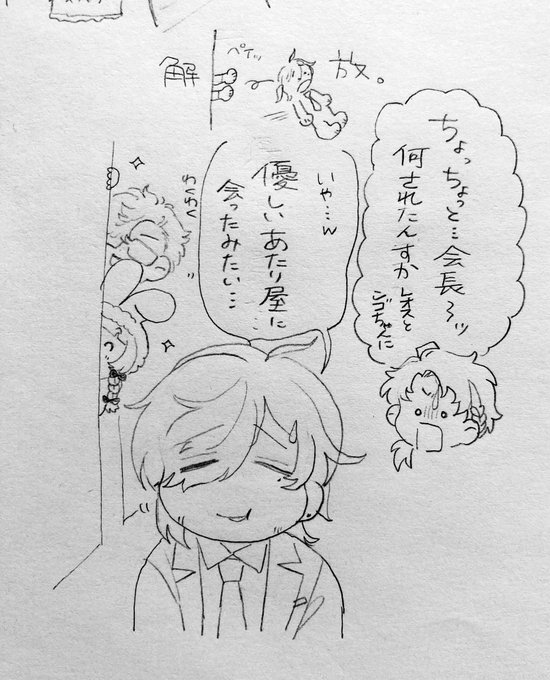 解
放。
ペイッ
ちょっちょっと…会長〜ッ
何されたんすかレオスと
ンゴちゃんに
いや…w
優しいあたり屋に
会ったみたい…
わくわく